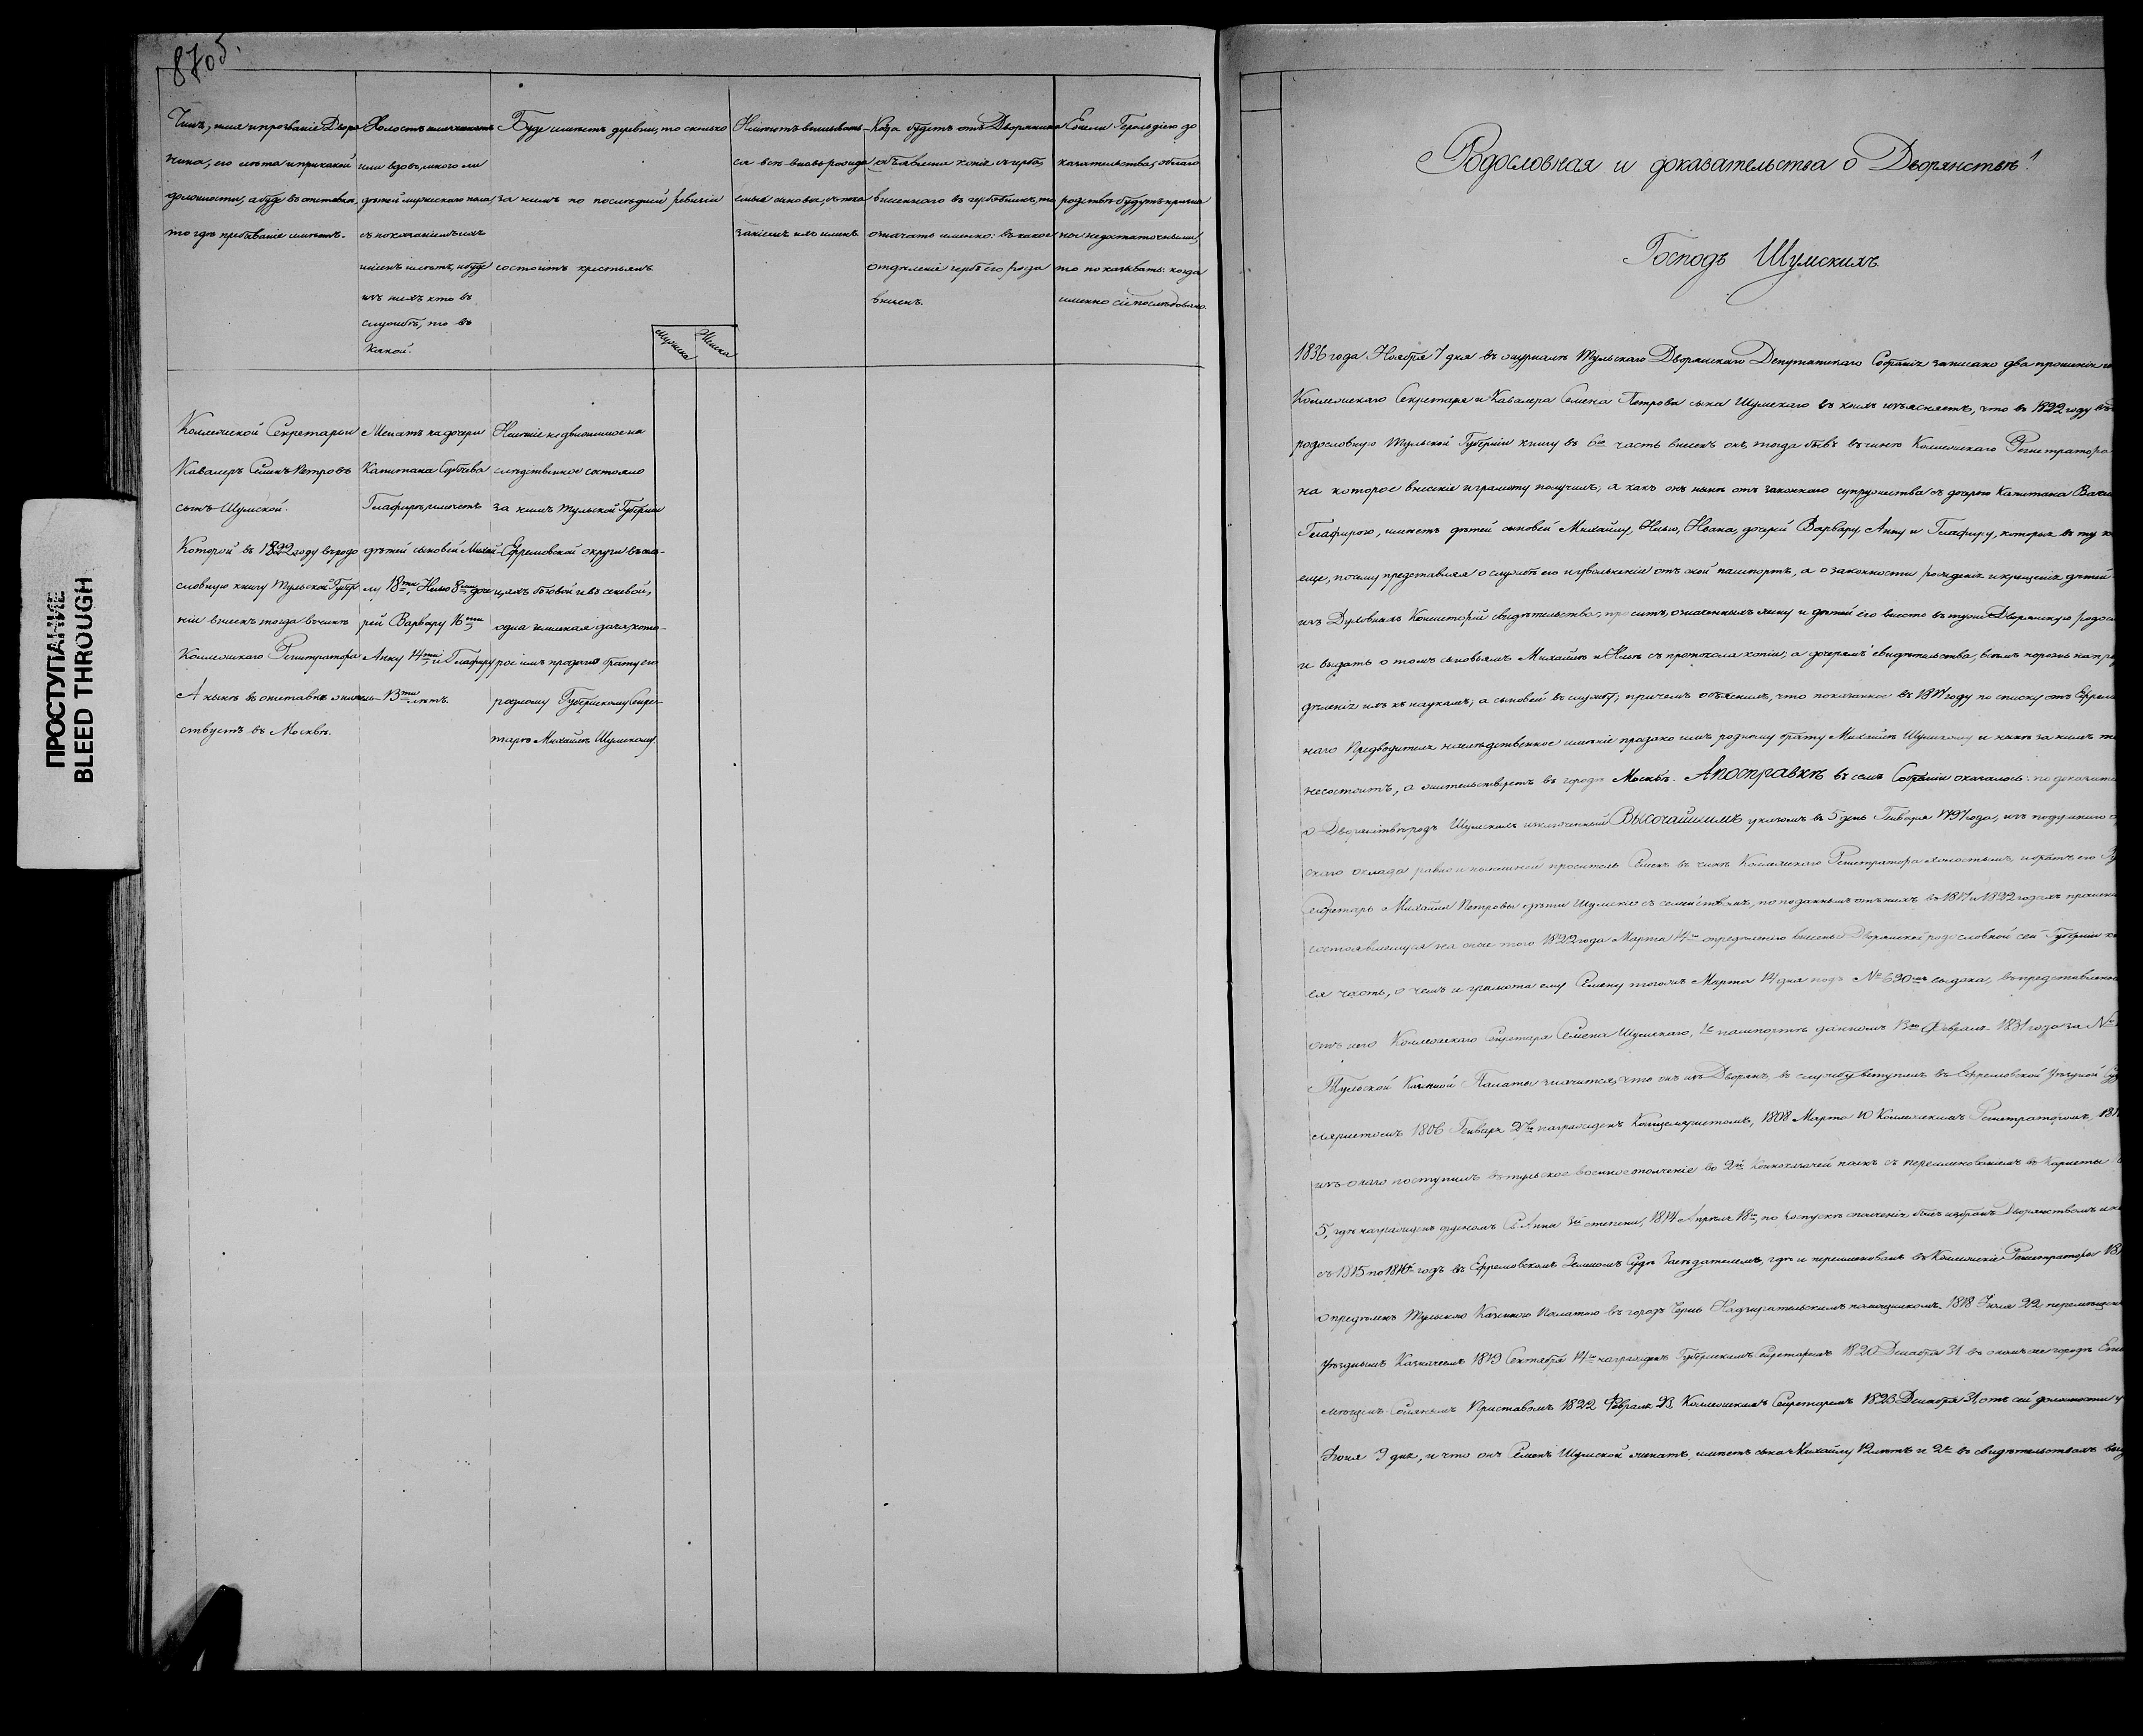 8705.
ПРОСТУПАНИЕ
BLEED THROUGH
Чинъ, имя и прозваніе Дворя
нина, его лѣта и при какой
должности, а буде въ отставкѣ,
то гдѣ пребываніе имѣетъ.
Холостъ или женатъ
или вдовъ, много ли
дѣтей мужескаго пола,
съ показаніемъ ихъ
именъ и лѣтъ, и буде
изъ нихъ кто въ
службѣ, то въ
какой.
Буде имѣетъ деревни, то сколько
за нимъ по послѣдней ревизіи
состоитъ крестьянъ.
Мужеска
Женска
Имѣютъ вписывать-
ся всѣ вновь рожда
емые сыновья, съ пока
заніемъ ихъ именъ.
Когда будетъ отъ Дворянина
объявлена копія съ герба,
внесеннаго въ гербовникъ, то
означать именно: въ какое
отдѣленіе гербъ его рода
внесенъ.
Ежели Герольдіею до
казательства, о благо
родствѣ будутъ призна
ны недостаточными,
то показывать: когда
именно сіе послѣдовало.
Коллежской Секретарь и
Кавалеръ Семенъ Петровъ
сынъ Шумской.
Которой въ 1822 году въ родо
словную книгу Тульской Губер
ніи внесенъ тогда въ чинѣ
Коллежскаго Регистратора
А нынѣ въ отставкѣ житель-
ствуетъ въ Москвѣ.
Женатъ на дочери
Капитана
Глафирѣ, имѣетъ
дѣтей сыновей Михай-
лу 18ти, Илью 8ми, доче
рей Варвару 16ти
Анну 14ти и Глафиру
13ти лѣтъ.
Имѣніе недвижимое на
слѣдственное состояло
за нимъ Тульской Губерніи
Ефремовской округи въ
одна земляная дача, кото-
рое имъ продано брату его
родному Губернскому Секре-
тарю Михайлѣ Шумскому.
Родословная и доказательства о Дворянствѣ
Господъ Шумскихъ.
1836 года Ноября 7 дня въ журналѣ Тульскаго Дворянскаго Депутатскаго Собранія записано два прошенія
Коллежскаго Секретаря и Кавалера Семена Петрова сына Шумскаго въ коихъ изъясняетъ, что въ 1822 году въ
родословную Тульской Губерніи книгу въ 6ю часть внесенъ онъ, тогда бывъ въ чинѣ Коллежскаго Регистратора
на которое внесеніе и грамоту получилъ; а какъ онъ нынѣ отъ законнаго супружества съ дочерью Капитана
Глафирою, имѣетъ дѣтей сыновей Михайлу, Илью, Ивана, дочерей Варвару, Анну и Глафиру, которыя въ ту
еще, почему представляя о службѣ его и увольненіи отъ оной паспортъ, а о законности рожденія и крещенія дѣтей
изъ Духовныхъ Консисторій свидѣтельства, проситъ, означенныхъ жену и дѣтей его внесть въ туже Дворянскую
и выдать о томъ сыновьямъ Михайлѣ и Ильѣ съ протокола копіи, а дочерямъ свидѣтельства, всѣмъ порознь
дѣленія ихъ къ наукамъ; а сыновей въ службу; причемъ объяснилъ, что показанное въ 1817 году по списку отъ
наго Предводителя наслѣдственное имѣніе продано имъ родному брату Михайлѣ Шумскому и нынѣ за нимъ
несостоитъ, а жительствуетъ въ городѣ Москвѣ. А по справкѣ въ семъ Собраніи оказалось: по
о Дворянствѣ родъ Шумскихъ исключенный Высочайшимъ указомъ въ 5 день Генваря 1797 года, изъ подушнаго
скаго оклада равно и нынѣшній проситель Семенъ въ чинѣ Коллежскаго Регистратора холостымъ, и братъ его
Секретарь Михайла Петровы дѣти Шумскіе съ семействомъ, по поданнымъ отъ нихъ въ 1817 и 1822 годахъ
состоявшемуся на оные того 1822 года Марта 14го опредѣленію внесены Дворянской родословной сей Губерніи
ея часть, о чемъ и грамота ему Семену тогожъ Марта 14 дня подъ № 630мъ выдана, въ представленномъ
отъ него Коллежскаго Секретаря Семена Шумскаго, 1е паспортѣ данномъ 13го Февраля 1831 года за №
Тульской Казенной Палаты значится, что онъ изъ Дворянъ, въ службу вступилъ въ Ефремовской Уѣздной
1806 Генваря награжденъ Канцеляристомъ, 1808 Марта 10 Коллежскимъ Регистраторомъ,
изъ онаго поступилъ въ тульское военное ополченіе во 2й Коннказачей полкъ съ переименованіемъ въ Корнеты
5, гдѣ награжденъ орденомъ Св. Анны 3й степени, 1814 Апрѣля 18го, по роспускѣ ополченія былъ избранъ Дворянствомъ
съ 1815 по 1816й годъ въ Ефремовскомъ Земскомъ Судѣ Засѣдателемъ, гдѣ и переименованъ въ Коллежскіе Регистраторы
опредѣленъ Тульскою Казенною Палатою въ городъ Чернь Надзирательскимъ помощникомъ. 1818 Іюля 22 перемѣщенъ
уѣзднымъ Казначеемъ 1819 Сентября 14го награжденъ Губернскимъ Секретаремъ 1820 Декабря 31 въ ономъ же городѣ
Солянымъ Приставомъ 1822 Февраля 23 Коллежскимъ Секретаремъ 1823 Декабря 31, отъ сей должности
Іюня 9 дня, и что онъ Семенъ Шумской женатъ, имѣетъ сына Михайлу 12 лѣтъ и 2е въ свидѣтельствахъ